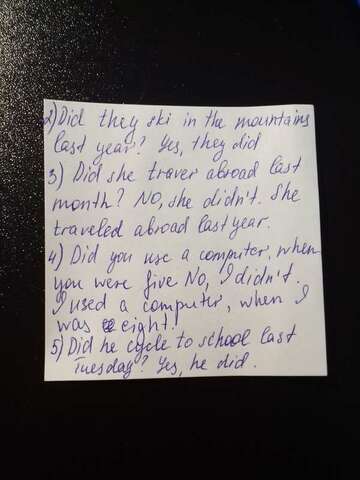 2) Did they ski in the mountains
last year? Yes, they did
3) Did she traver abroad last
month? No, she didn't. She
traveled abroad last year.
4) Did you use a computer, when
you were five No, I didn't.
I used a computer, when I
was eight!
5) Did he cycle to school last
Tuesday? Yes, he did.